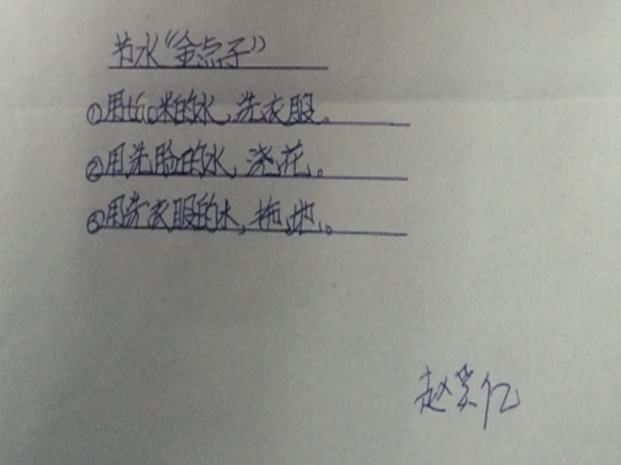 节水“金点子”
①用tao米的水,洗衣服。
②用洗脸的水,浇花。
③用洗衣服的水,拖地。
赵奕亿